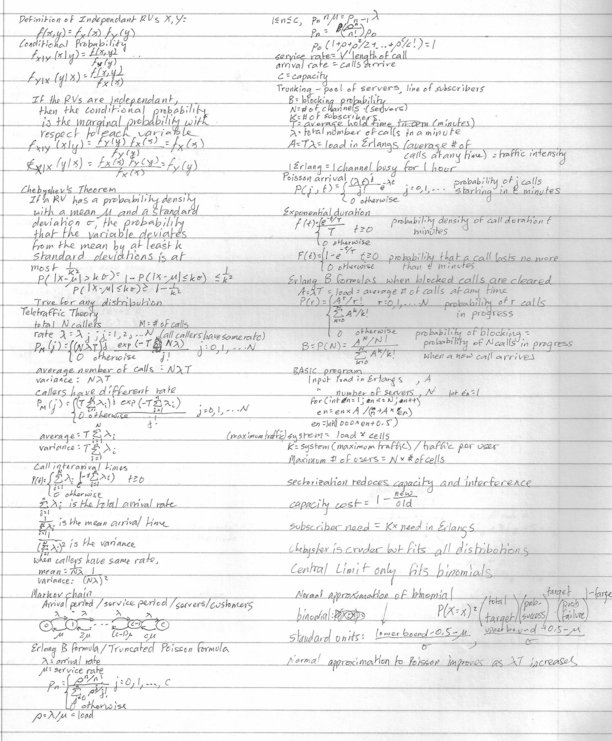 Definition of Independant RVs X,Y:
f(x,y) = fx(x) fy(y)
Conditional Probability
fX|Y(x|y) = f(x,y)/fy(y)
fY|X(y|x) = f(x,y)/fx(x)
If the RVs are independant,
then the conditional probability
is the marginal probability with
respect to each variable.
fX|Y(x|y) = fy(y) fx(x)/fy(y) = fx(x)
fY|X(y|x) = fx(x) fy(y)/fx(x) = fy(y)
Chebyshev's Theorem
If a RV has a probability density
with a mean μ and a standard
deviation σ, the probability
that the variable deviates
from the mean by at least k
standard deviations is at
most 1/k²
P(|x-μ|>kσ) = 1-P(|x-μ|≤kσ) ≤ 1/k²
P(|x-μ|≤kσ) ≥ 1-1/k²
True for any distribution
Teletraffic Theory
total N callers M=# of calls
rate λ = λj ; j=1,2,...N (all callers have same rate)
average number of calls = NλT
variance: NλT
callers have different rate
average = T Σ λi
variance = T Σ λi
Call interarrival times
0 otherwise
Σ λi is the total arrival rate
1/Σ λi is the mean arrival time
1/(Σ λi)² is the variance
When callers have same rate,
mean = 1/Nλ
variance: 1/(Nλ)²
Markov chain
Arrival period/service period/servers/customers
λ λ λ λ
0 1 C
μ 2μ (c-1)μ cμ
Erlang B formula / Truncated Poisson formula
λ=arrival rate
μ=service rate
0 otherwise
ρ=λ/μ = load
1≤n≤c, pn nμ = pn-1 λ
pn = (ρⁿ/n!) p0
p0(1+ρ+ρ²/2+...+ρᶜ/c!)=1
service rate = 1/length of call
arrival rate = calls arrive
C=capacity
Trunking - pool of servers, line of subscribers
B=blocking probability
N=# of channels (servers)
K=# of subscribers
T=average hold time in (minutes)
λ=total number of calls in a minute
A=Tλ= load in Erlangs (average # of
calls at any time) = traffic intensity
1 Erlang = 1 channel busy for 1 hour
Poisson arrival
P(j,t) = { (λt)ʲ/j! e^-λt j=0,1,... probability of j calls
0 otherwise starting in t minutes
Exponential duration
f(t)={ e^-t/T / T t≥0 probability density of call duration t
0 otherwise minutes
F(t)={1-e^-t/T t≥0 probability that a call lasts no more
0 otherwise than t minutes
Erlang B formulas when blocked calls are cleared
A=λT=load=average # of calls at any time
P(r) = { (Aʳ/r!) / Σ Aᵏ/k! r=0,1,...N probability of r calls
in progress
0 otherwise probability of blocking =
B=P(N)= (A^N/N!) / Σ Aᵏ/k! probability of N calls in progress
when a new call arrives
BASIC program
Input load in Erlangs, A
" number of servers, N let en=1
(maximum traffic) system = load × cells
K=system (maximum traffic)/traffic per user
Maximum # of users = N × # of cells
sectorization reduces capacity and interference
capacity cost = 1 - new/old
subscriber need = K × need in Erlangs
Chebyshev is cruder but fits all distributions
Central Limit only fits binomials
Normal approximation of binomial
standard units: (lower bound-0.5-μ)/σ , (upper bound+0.5-μ)/σ
Normal approximation to Poisson improves as λT increases